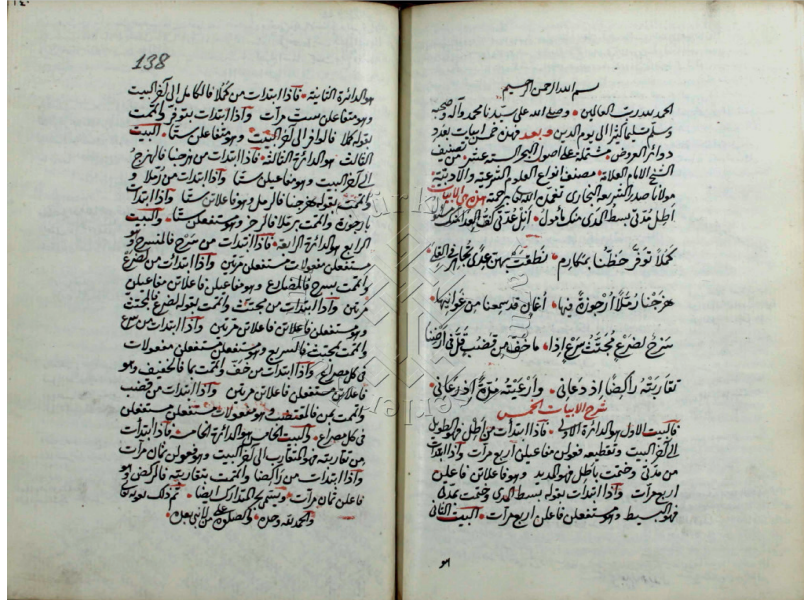 بسم الله الرحمن الرحيم
الحمد لله رب العالمين وصلى الله على سيدنا محمد وآله وصحبه
وسلم تسليما كثيرا الى يوم الدين وبعد فهذه خمس ابيات بعدد
دوائر العروض مشتملة على اصول البحور الستة عشر من تصنيف
الشيخ الامام العلامة مصنف انواع العلوم الشرعية والادبية
مولانا صدر الشريعة البخاري تغمده الله برحمته هذه هي الابيات
اطل مدتى بسط الذى منك مأمول
كملا توفر حظنا بمكارم نطقت بهن
هزجنا رملا ارجوزة فيها اغان قد سمعنا من غوانيها
سرح لضرع مجتث سرع اذا ما خف من قضب
تقاربته راكضا اذ دعانى وارعيته مرة اذ رعانى
شرح الابيات الخمس
فالبيت الاول هو الدائرة الاولى فاذا ابتدات من اطل فهو الطويل
الى آخر البيت وتقطيعه فعولن مفاعيلن اربع مرات واذا ابتدات
من مدتى وختمت باطل فهو المديد وهو فاعلاتن فاعلن
اربع مرات واذا ابتدات بقوله بسط الذى وختمت بمدتى
فهو البسيط وهو مستفعلن فاعلن اربع مرات البيت الثانى
هو
138
هو الدائرة الثانية فاذا ابتدات من كملا فالكامل الى آخر البيت
وهو متفاعلن ست مرات واذا ابتدات بتوفر واتممت
بقوله كملا فالوافر الى آخر البيت وهو مفاعلتن ستا البيت
الثالث هو الدائرة الثالثة فاذا ابتدات من هزجنا فالهزج
الى آخر البيت وهو مفاعيلن ستا واذا ابتدات من رملا و
واتممت بقوله هزجنا فالرمل وهو فاعلاتن ستا واذا ابتدات
بارجوزة واتممت برملا فالرجز وهو مستفعلن ستا والبيت
الرابع هو الدائرة الرابعة فاذا ابتدات من سرح فالمنسرح وهو
مستفعلن مفعولات مستفعلن مرتين واذا ابتدات من لضرع
واتممت بسرح فالمضارع وهو مفاعيلن فاعلاتن مفاعيلن
مرتين واذا ابتدات من مجتث واتممت بقوله لضرع فالمجتث
وهو مستفعلن فاعلاتن فاعلاتن مرتين واذا ابتدات من سرع
واتممت بمجتث فالسريع وهو مستفعلن مستفعلن مفعولات
فى كل مصراع واذا ابتدات من خف واتممت بما فالخفيف وهو
فاعلاتن مستفعلن فاعلاتن مرتين واذا ابتدات من قضب
واتممت بمن فالمقتضب وهو مفعولات مستفعلن مستفعلن
فى كل مصراع والبيت الخامس هو الدائرة الخامسة فاذا ابتدات
من تقاربته فهو المتقارب الى آخر البيت وهو فعولن ثمان مرات
واذا ابتدات من راكضا واتممت بتقاربته فالركض وهو
فاعلن ثمان مرات ويسمى بالمتدارك ايضا تم ذلك
والحمد لله وحده والصلوة على من لا نبى بعده